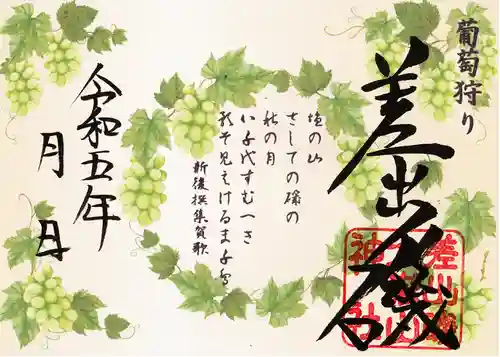 葡萄狩り
差出磯
差出磯
大嶽山
神社
塩の山
さしての磯の
秋の月
八千代すむへき
影そ見えける
新後撰集賀歌
令和五年
月 日